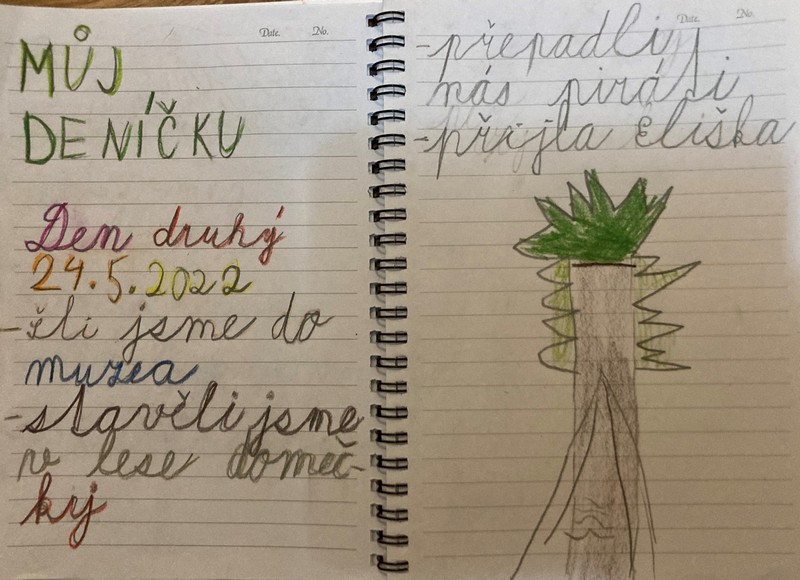 Date. No.
MŮJ
DENÍČKU
Den druhý
24.5.2022
-šli jsme do
muzea
-stavěli jsme
v lese domeč-
ky
Date. No.
-přepadli
nás piráti
-přijla Eliška